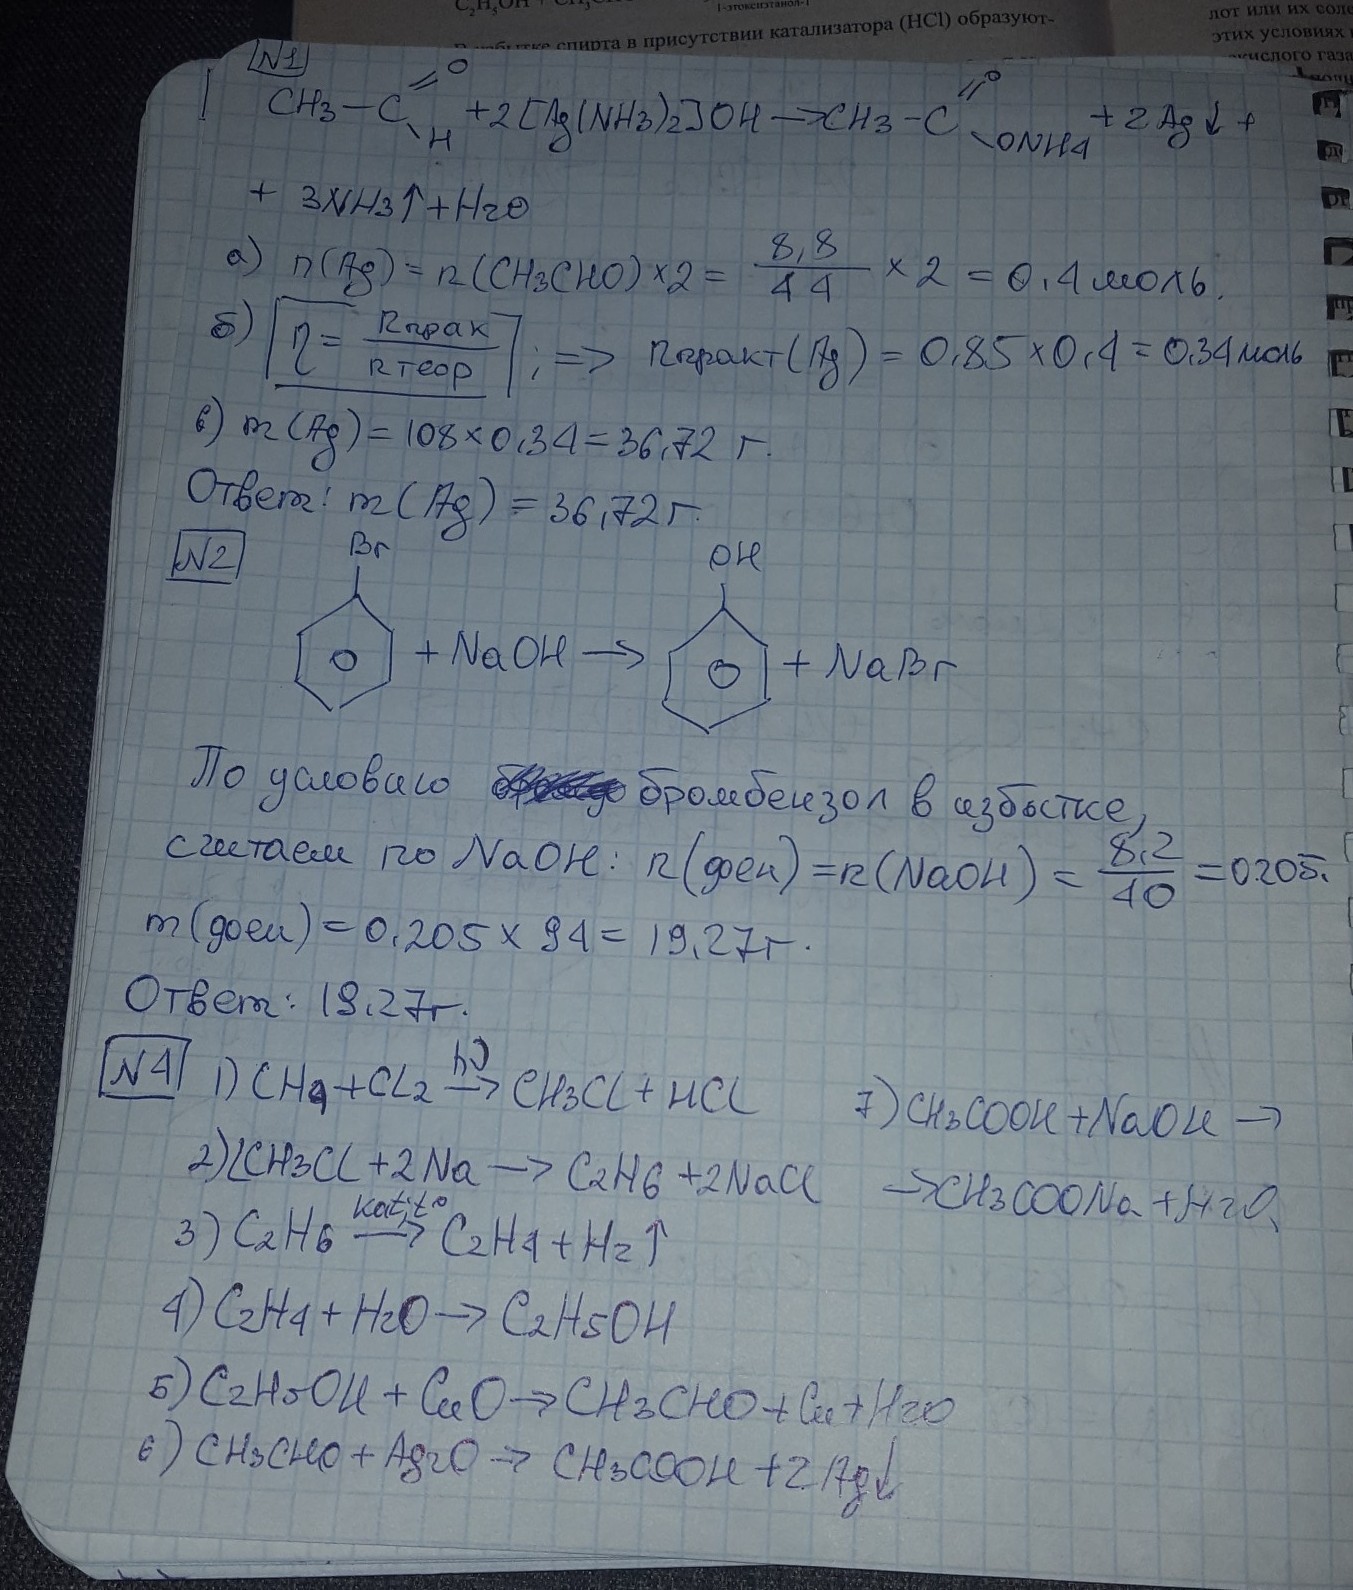 C₂H₅OH +
1-этоксиэтанол-1
спирта в присутствии катализатора (HCl) образуют-
лот или их соле
этих условиях
кислого газа
N1
CH3-C=O H +2[Ag(NH3)2]OH → CH3-C=O ONH4 + 2Ag↓ +
+ 3NH3↑ + H2O
а) n(Ag) = n(CH3CHO)×2 = 8,8/44 × 2 = 0,4 моль.
б) η = nпрак/nтеор ; => nпракт(Ag) = 0,85×0,4 = 0,34 моль
в) m(Ag) = 108×0,34 = 36,72 г.
Ответ: m(Ag) = 36,72 г.
N2
Br OH
+ NaOH → + NaBr
По условию бромбензол в избытке,
считаем по NaOH: n(фен) = n(NaOH) = 8,2/40 = 0205.
m(фен) = 0,205 × 94 = 19,27г.
Ответ: 19,27г.
N4
1) CH4 + Cl2 hν → CH3Cl + HCl
2) 2CH3Cl + 2Na → C2H6 + 2NaCl
3) C2H6 kat, t° → C2H4 + H2↑
4) C2H4 + H2O → C2H5OH
5) C2H5OH + CuO → CH3CHO + Cu + H2O
6) CH3CHO + Ag2O → CH3COOH + 2Ag↓
7) CH3COOH + NaOH →
→ CH3COONa + H2O